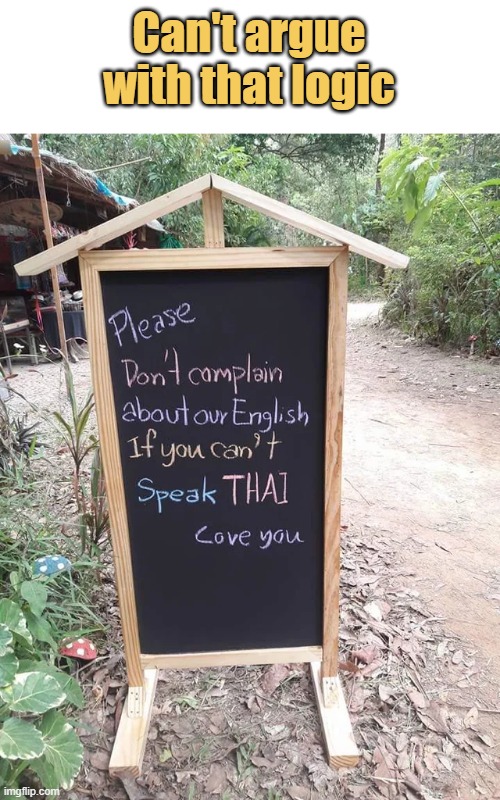 Can't argue
with that logic
Please
Don't complain
about our English
If you can't
Speak THAI
Love you
imgflip.com